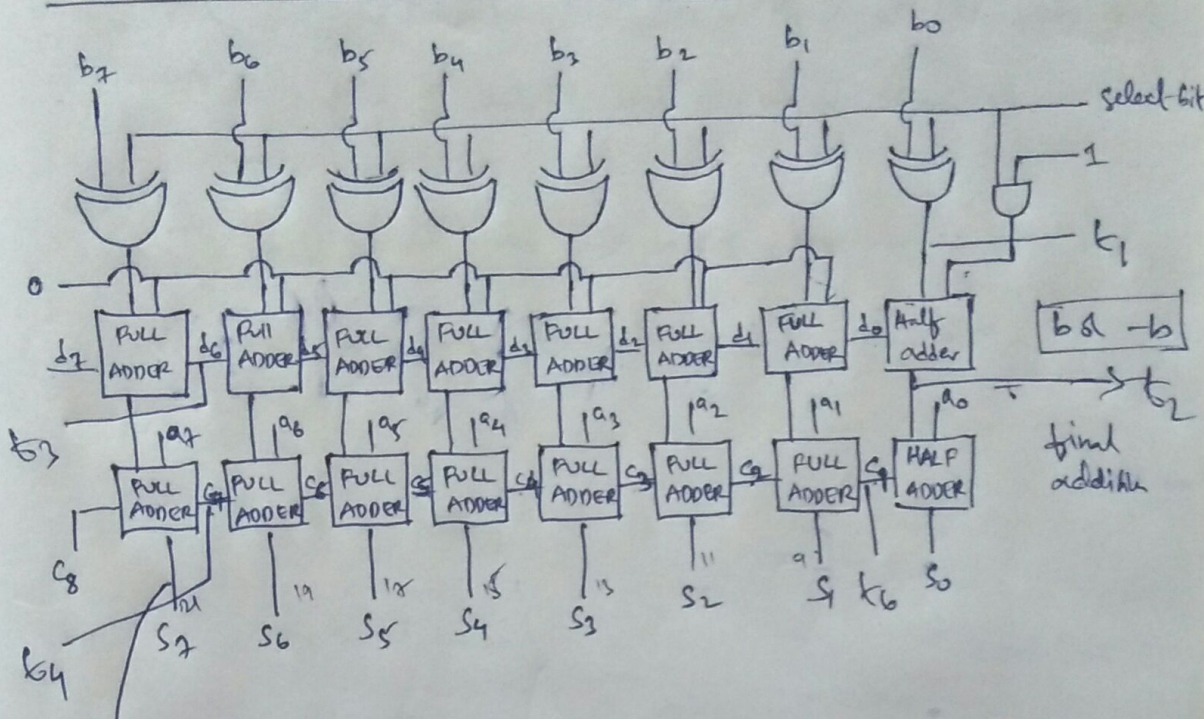 b7 b6 b5 b4 b3 b2 b1 b0
select-bit
1
t1
0
d7 FULL ADDER d6 FULL ADDER d5 FULL ADDER d4 FULL ADDER d3 FULL ADDER d2 FULL ADDER d1 FULL ADDER d0 Half adder
b or -b
t2
t3
a7 a6 a5 a4 a3 a2 a1 a0
final
FULL ADDER C7 FULL ADDER C6 FULL ADDER C5 FULL ADDER C4 FULL ADDER C3 FULL ADDER C2 FULL ADDER C1 HALF ADDER
C8
21 19 15 13 11 9
S7 S6 S5 S4 S3 S2 S1 t6 S0
t4